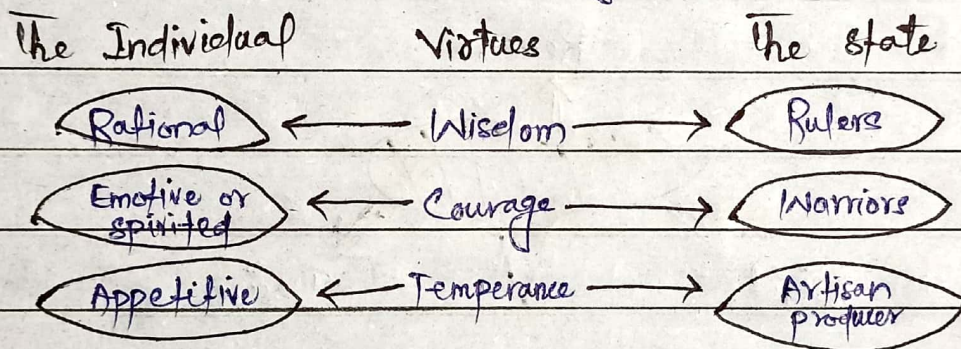 The Individual Virtues The state
Rational Wisdom Rulers
Emotive or spirited Courage Warriors
Appetitive Temperance Artisan producer